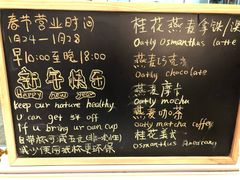 春节营业时间
1月24-1月28
早10:00至晚18:00
新年快乐
Happy new year
keep our nature healthy
u can get 5¥ off
If u bring ur own cup
自带杯可减五元
减少使用纸杯更环保
桂花燕麦拿铁
Oatly Osmanthus latte
燕麦巧克力
Oatly chocolate
燕麦摩卡
Oatly mocha
燕麦抹茶
Oatly matcha coffee
桂花美式
Osmanthus Americano